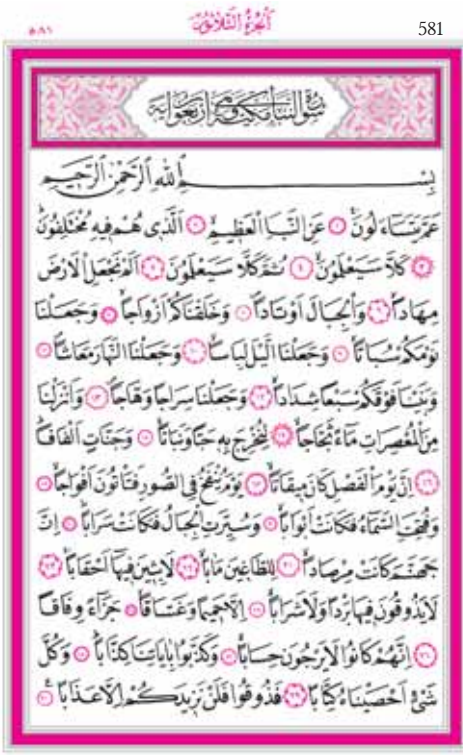 581 اَلْجُزْءُ الثَّلَاثُونَ ٥٨١
سُورَةُ النَّبَأِ مَكِّيَّةٌ وَهِيَ اَرْبَعُونَ اٰيَةً
بِسْمِ اللّٰهِ الرَّحْمٰنِ الرَّحِيمِ
عَمَّ يَتَسَاءَلُونَ ﴿١﴾ عَنِ النَّبَاِ الْعَظِيمِ ﴿٢﴾ اَلَّذِى هُمْ فِيهِ مُخْتَلِفُونَ
﴿٣﴾ كَلَّا سَيَعْلَمُونَ ﴿٤﴾ ثُمَّ كَلَّا سَيَعْلَمُونَ ﴿٥﴾ اَلَمْ نَجْعَلِ الْاَرْضَ
مِهَادًا ﴿٦﴾ وَالْجِبَالَ اَوْتَادًا ﴿٧﴾ وَخَلَقْنَاكُمْ اَزْوَاجًا ﴿٨﴾ وَجَعَلْنَا
نَوْمَكُمْ سُبَاتًا ﴿٩﴾ وَجَعَلْنَا الَّيْلَ لِبَاسًا ﴿١٠﴾ وَجَعَلْنَا النَّهَارَ مَعَاشًا ﴿١١﴾
وَبَنَيْنَا فَوْقَكُمْ سَبْعًا شِدَادًا ﴿١٢﴾ وَجَعَلْنَا سِرَاجًا وَهَّاجًا ﴿١٣﴾ وَاَنْزَلْنَا
مِنَ الْمُعْصِرَاتِ مَاءً ثَجَّاجًا ﴿١٤﴾ لِنُخْرِجَ بِهِ حَبًّا وَنَبَاتًا ﴿١٥﴾ وَجَنَّاتٍ اَلْفَافًا
﴿١٦﴾ اِنَّ يَوْمَ الْفَصْلِ كَانَ مِيقَاتًا ﴿١٧﴾ يَوْمَ يُنْفَخُ فِى الصُّورِ فَتَاْتُونَ اَفْوَاجًا ﴿١٨﴾
وَفُتِحَتِ السَّمَاءُ فَكَانَتْ اَبْوَابًا ﴿١٩﴾ وَسُيِّرَتِ الْجِبَالُ فَكَانَتْ سَرَابًا ﴿٢٠﴾ اِنَّ
جَهَنَّمَ كَانَتْ مِرْصَادًا ﴿٢١﴾ لِلطَّاغِينَ مَاٰبًا ﴿٢٢﴾ لَابِثِينَ فِيهَا اَحْقَابًا ﴿٢٣﴾
لَايَذُوقُونَ فِيهَا بَرْدًا وَلَا شَرَابًا ﴿٢٤﴾ اِلَّا حَمِيمًا وَغَسَّاقًا ﴿٢٥﴾ جَزَاءً وِفَاقًا
﴿٢٦﴾ اِنَّهُمْ كَانُوا لَا يَرْجُونَ حِسَابًا ﴿٢٧﴾ وَكَذَّبُوا بِاٰيَاتِنَا كِذَّابًا ﴿٢٨﴾ وَكُلَّ
شَىْءٍ اَحْصَيْنَاهُ كِتَابًا ﴿٢٩﴾ فَذُوقُوا فَلَنْ نَزِيدَكُمْ اِلَّا عَذَابًا ﴿٣٠﴾